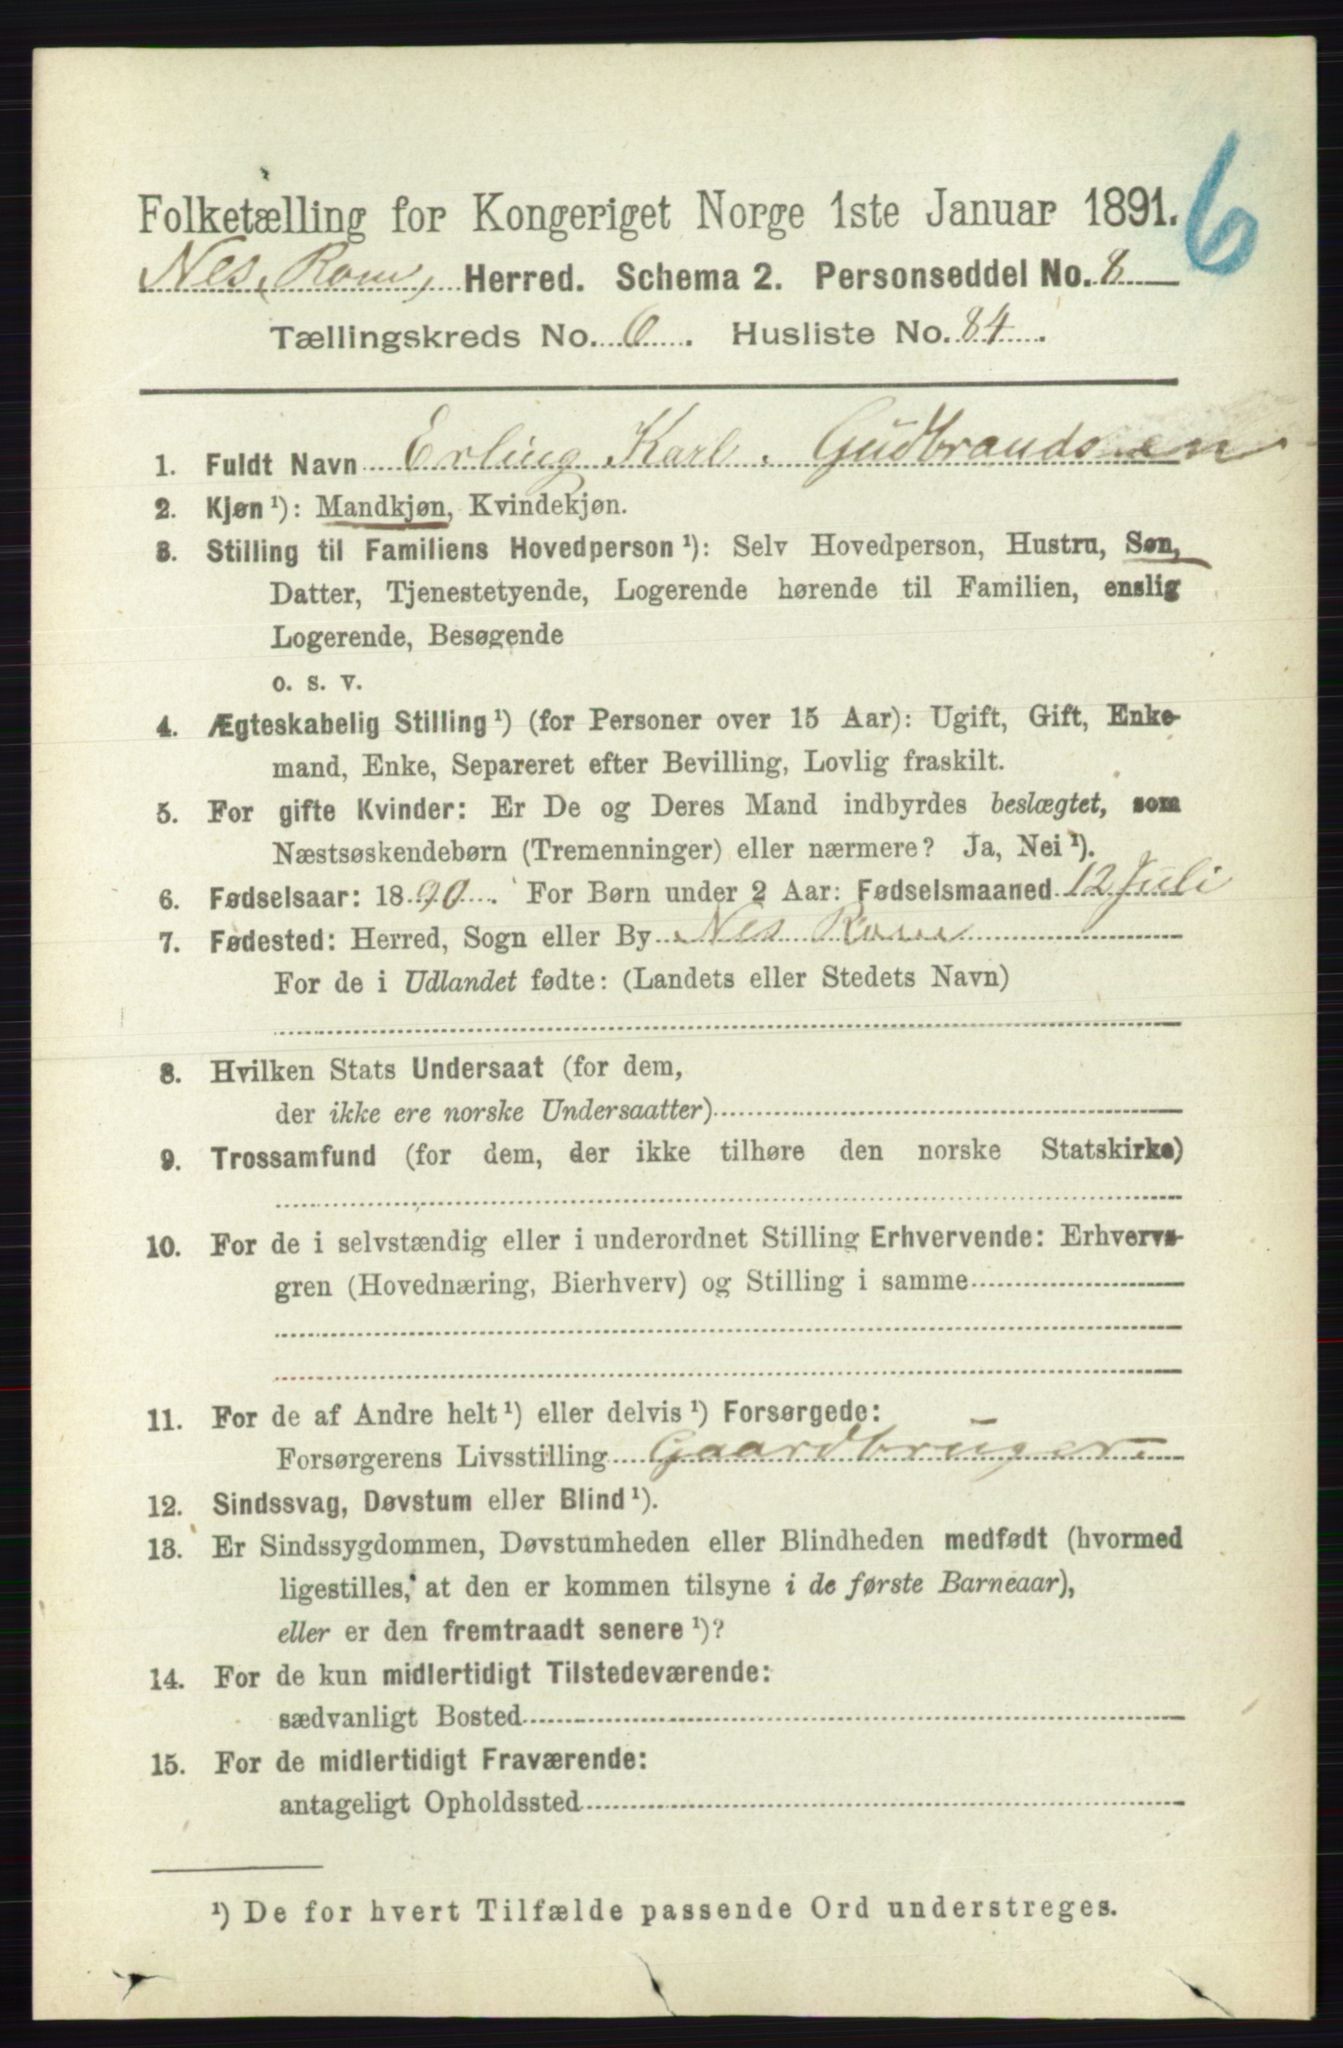 6
Folketælling for Kongeriget Norge 1ste Januar 1891.
Nes, Rom, Herred. Schema 2. Personseddel No. 8
Tællingskreds No. 6. Husliste No. 84.
1. Fuldt Navn Erling Karl. Gudbrandsen
2. Kjøn ¹): Mandkjøn, Kvindekjøn.
3. Stilling til Familiens Hovedperson ¹): Selv Hovedperson, Hustru, Søn,
Datter, Tjenestetyende, Logerende hørende til Familien, enslig
Logerende, Besøgende
o. s. v.
4. Ægteskabelig Stilling ¹) (for Personer over 15 Aar): Ugift, Gift, Enke-
mand, Enke, Separeret efter Bevilling, Lovlig fraskilt.
5. For gifte Kvinder: Er De og Deres Mand indbyrdes beslægtet, som
Næstsøskendebørn (Tremenninger) eller nærmere? Ja, Nei ¹).
6. Fødselsaar: 1890. For Børn under 2 Aar: Fødselsmaaned 12 Juli
7. Fødested: Herred, Sogn eller By Nes Rom
For de i Udlandet fødte: (Landets eller Stedets Navn)
8. Hvilken Stats Undersaat (for dem,
der ikke ere norske Undersaatter)
9. Trossamfund (for dem, der ikke tilhøre den norske Statskirke)
10. For de i selvstændig eller i underordnet Stilling Erhvervende: Erhvervs-
gren (Hovednæring, Bierhverv) og Stilling i samme
11. For de af Andre helt ¹) eller delvis ¹) Forsørgede:
Forsørgerens Livsstilling Gaardbruger
12. Sindssvag, Døvstum eller Blind ¹).
13. Er Sindssygdommen, Døvstumheden eller Blindheden medfødt (hvormed
ligestilles, at den er kommen tilsyne i de første Barneaar),
eller er den fremtraadt senere ¹)?
14. For de kun midlertidigt Tilstedeværende:
sædvanligt Bosted
15. For de midlertidigt Fraværende:
antageligt Opholdssted
¹) De for hvert Tilfælde passende Ord understreges.